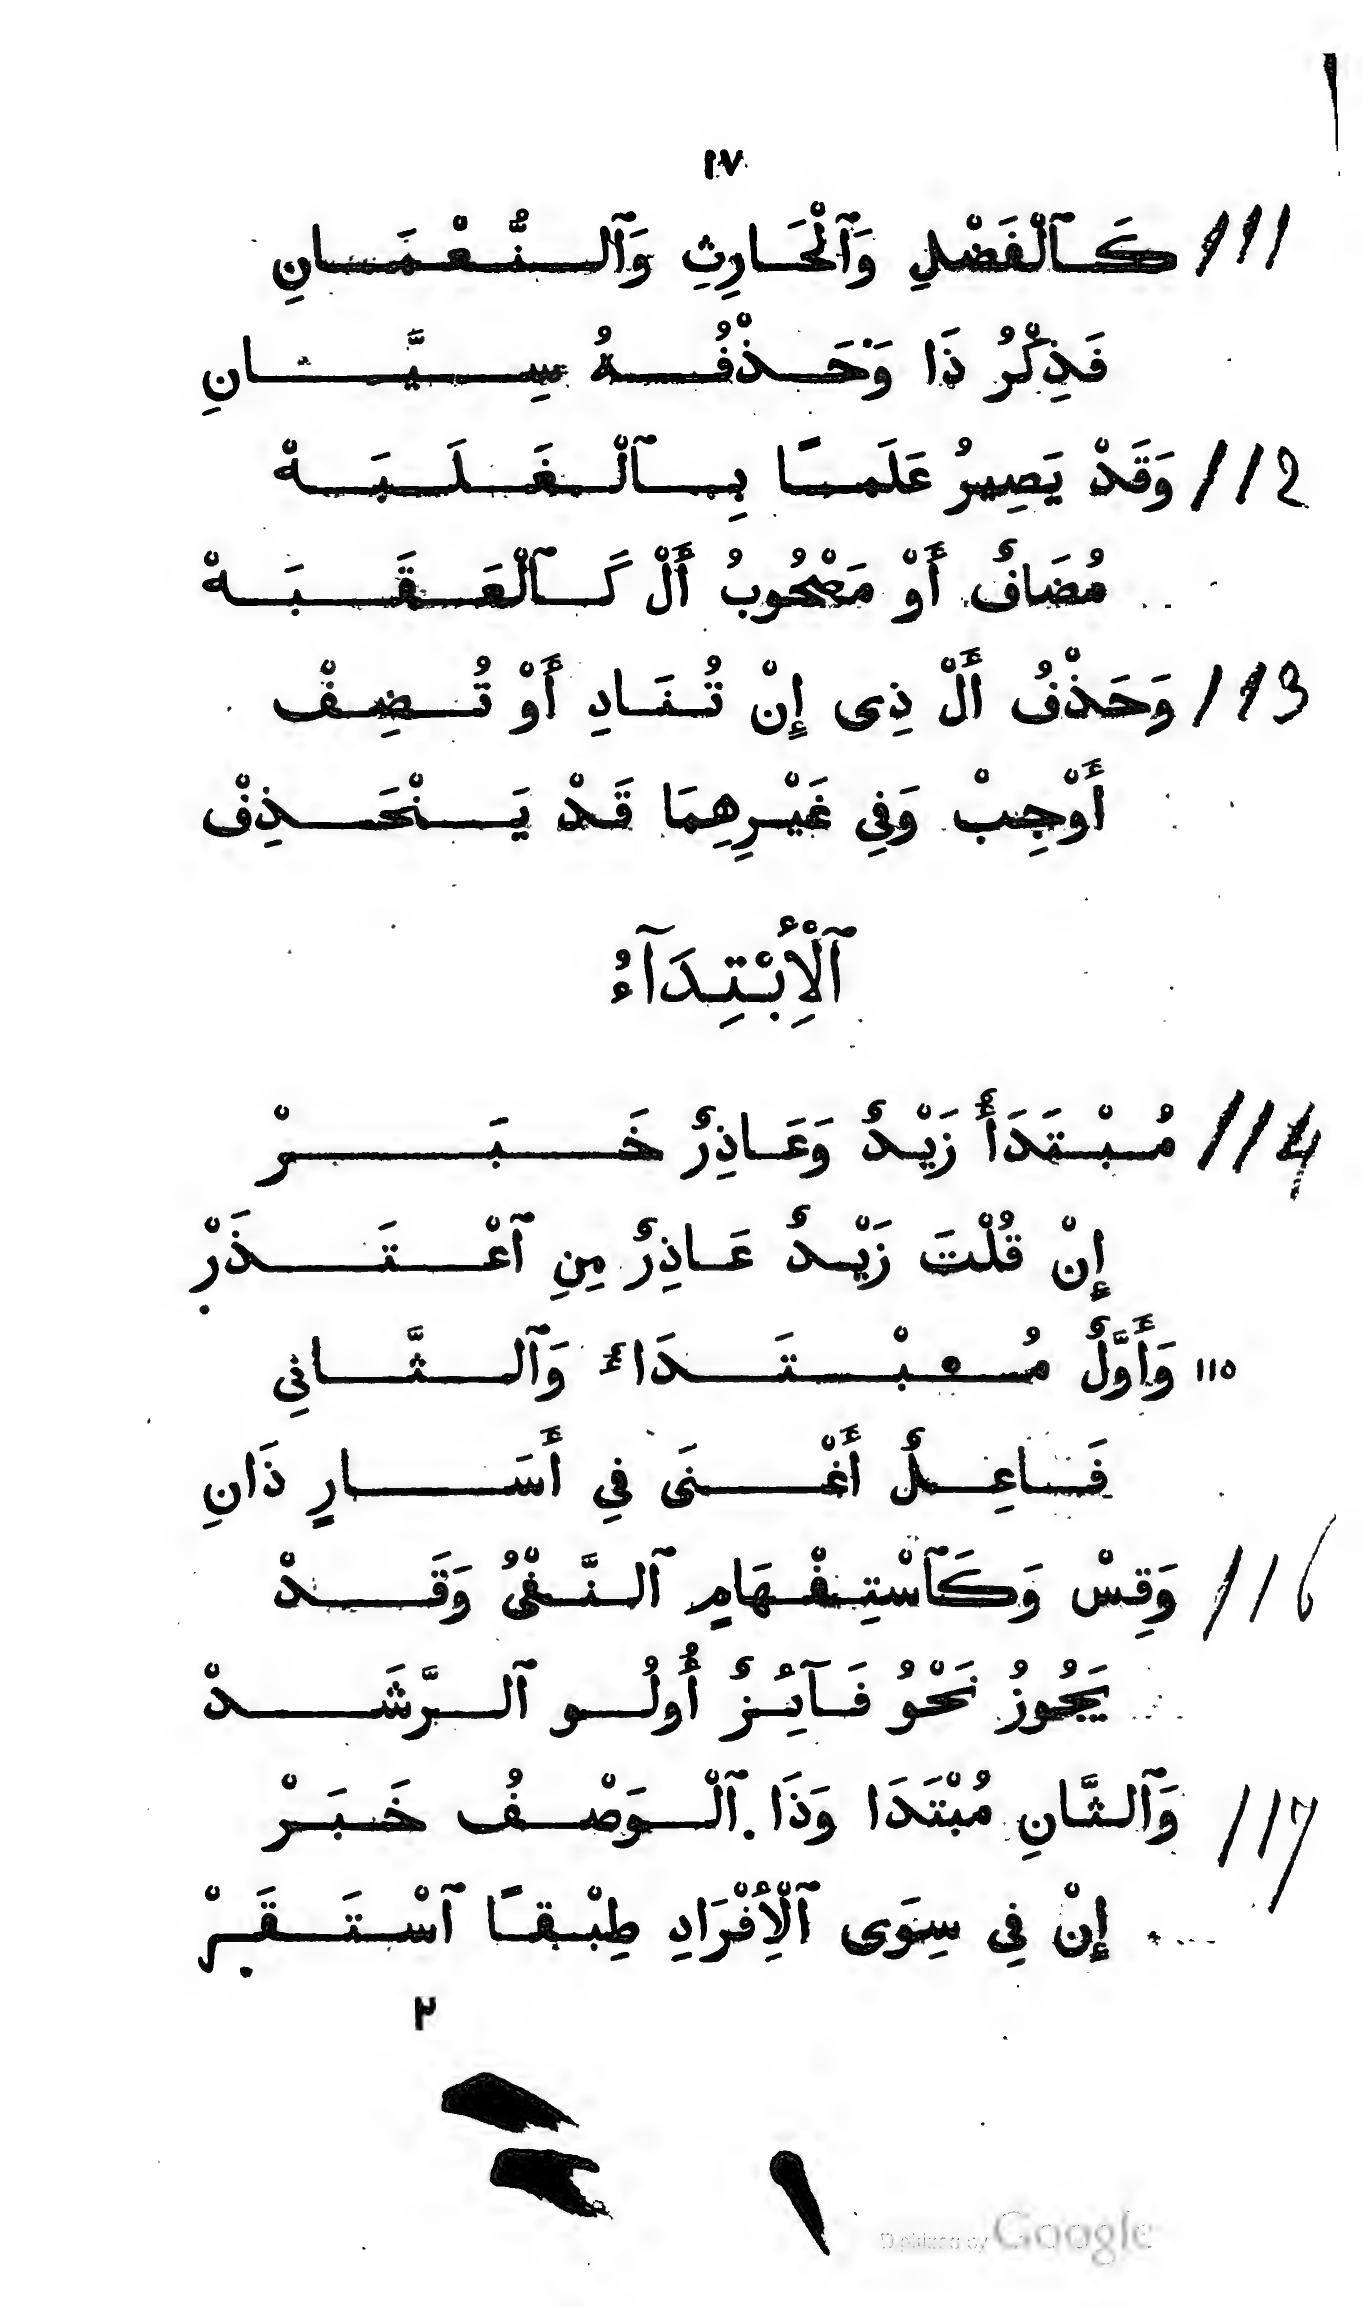 ١٧
111 كَٱلْفَضْلِ وَٱلْحَارِثِ وَٱلنُّعْمَانِ
فَذِكْرُ ذَا وَحَذْفُهُ سِيَّانِ
112 وَقَدْ يَصِيرُ عَلَمًا بِٱلْغَلَبَهْ
مُضَافٌ أَوْ مَصْحُوبُ أَلْ كَٱلْعَقَبَهْ
113 وَحَذْفُ أَلْ ذِى إِنْ تُنَادِ أَوْ تُضِفْ
أَوْجِبْ وَفِى غَيْرِهِمَا قَدْ يَنْحَذِفْ
ٱلْأِبْتِدَآءُ
114 مُبْتَدَأٌ زَيْدٌ وَعَاذِرٌ خَبَرْ
إِنْ قُلْتَ زَيْدٌ عَاذِرٌ مِنِ ٱعْتَذَرْ
١١٥ وَأَوَّلٌ مُبْتَدَاءٌ وَٱلثَّانِى
فَاعِلٌ أَغْنَى فِى أَسَارٍ ذَانِ
116 وَقِسْ وَكَٱسْتِفْهَامٍ ٱلنَّفْىُ وَقَدْ
يَجُوزُ نَحْوُ فَآئِزٌ أُولُو ٱلرَّشَدْ
117 وَٱلثَّانِ مُبْتَدَا وَذَا ٱلْوَصْفُ خَبَرْ
إِنْ فِى سِوَى ٱلْأِفْرَادِ طِبْقًا ٱسْتَقَرْ
٢
Digitized by Google